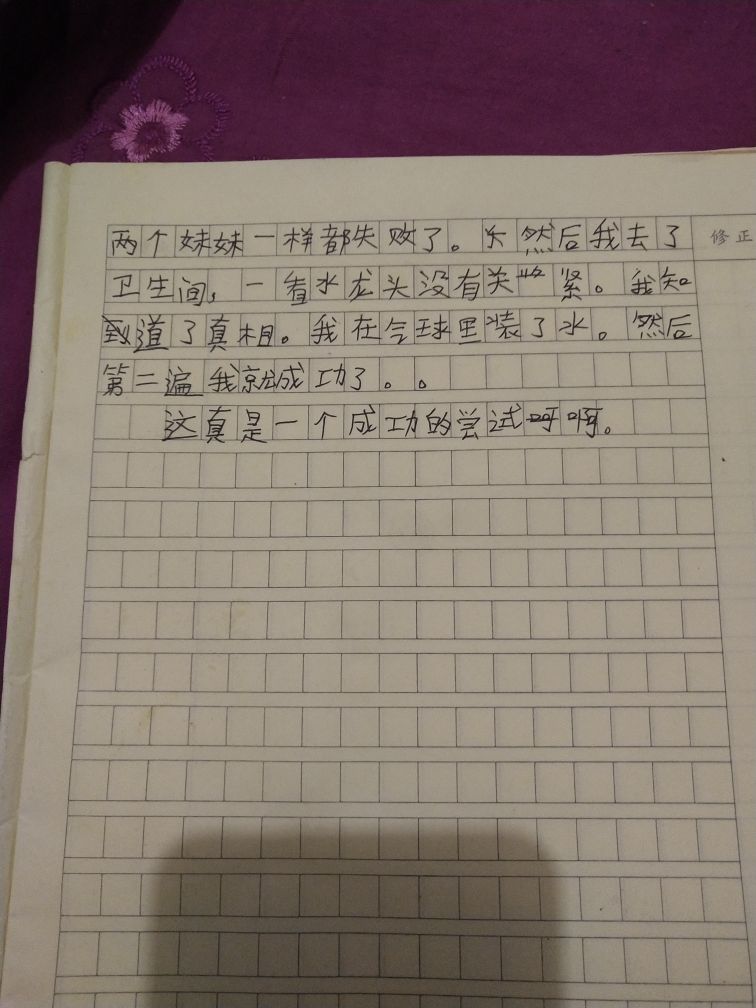 两个妹妹一样都失败了。然后我去了
修正
卫生间，一看水龙头没有关紧。我知
道了真相。我在气球里装了水。然后
第二遍我就成功了。。
这真是一个成功的尝试啊。